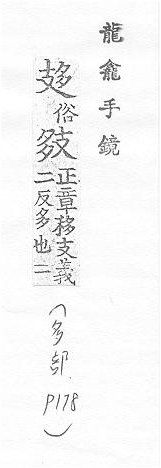 龍龕手鏡
䫂俗𡖇正章移支義
二反多也二
(多部.
P178)